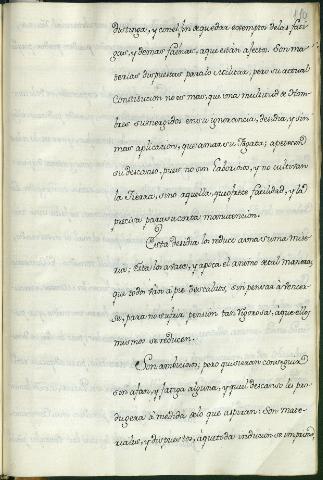 distinga, y con el fin de quedar exemptos de las fati-
gas, y demas faenas, a que estan afectos. Son ma-
terias dispuestas para lo Militar, pero su actual
Constitucion no es mas, que una multitud de Hom-
bres sumergidos en su ignorancia, desidia, y sin
mas aplicacion, que amar su apetecen
su descanso, pues no son Laboriosos, y no cultivan
la Tierra, sino aquella, que ofrece facilidad, y la
precisa para su corta manutencion.
Esta desidia los reduce a una suma mise-
ria: Esta los abate, y apoca el animo de tal manera,
que todos van a pie descalzos, sin pensar a vencer-
se, para no sufrir pension tan rigorosa, a que ellos
mismos se reducen.
Son ambiciosos; pero quisieran conseguir
sin afan, y fatiga alguna, y que el descanso les pro-
dugera a medida de lo que aspiran: Son mate-
riales, y dispuestos, a que toda induccion se imprima,